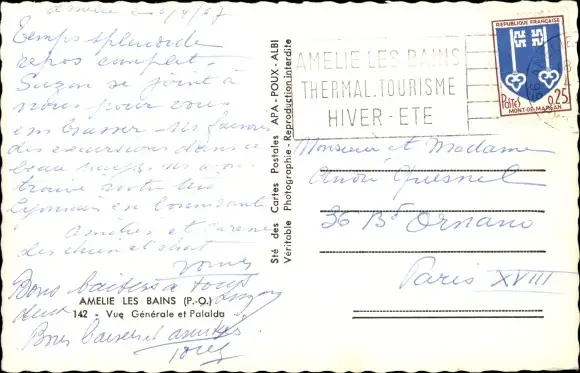 Temps splendide
repos complet.
Suzon se joint à
nous pour vous
embrasser. Nous faisons
des excursions dans ce
beau pays.
trouvé
Lyonnais en
Amélie et
des chiens et chat
Bons baisers à tous
deux Suzon
Bons baisers et amitiés
AMELIE LES BAINS (P.-O.)
142 - Vue Générale et Palalda
Sté des Cartes Postales APA - POUX - ALBI
Véritable Photographie - Reproduction interdite
AMELIE LES BAINS
THERMAL.TOURISME
HIVER - ETE
REPUBLIQUE FRANÇAISE
Postes 0,25
MONT-DE-MARSAN
Monsieur et Madame
André Quesnel
36 Bd Ornano
Paris XVIII